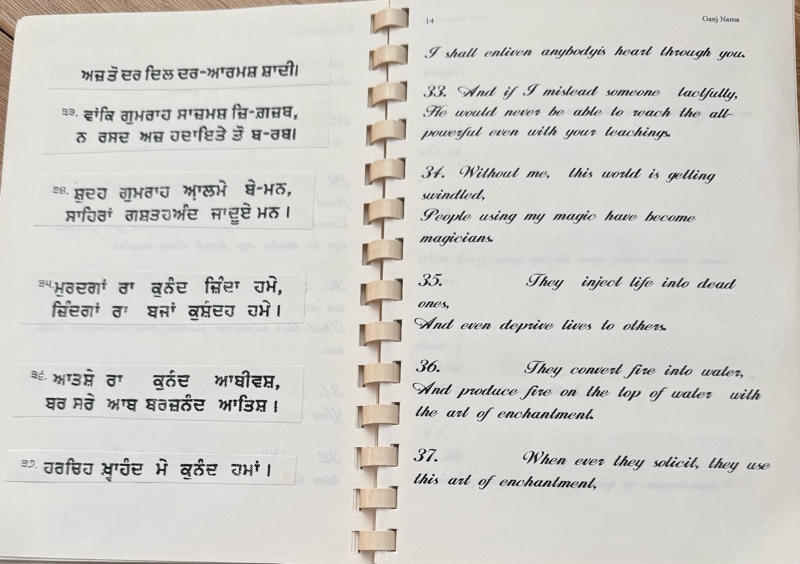 ਅਜ਼ ਤੋ ਦਰ ਦਿਲ ਦਰ-ਆਰਮਸ਼ ਸ਼ਾਦੀ।
੩੩. ਵਾਂਕਿ ਗੁਮਰਾਹ ਸਾਜ਼ਮਸ਼ ਜ਼ਿ-ਗ਼ਜ਼ਬ,
ਨ ਰਸਦ ਅਜ਼ ਹਦਾਇਤੇ ਤੋਂ ਬ-ਰਬ।
੩੪. ਸ਼ੁਦਹ ਗੁਮਰਾਹ ਆ਼ਲਮੇ ਬੇ-ਮਨ,
ਸਾਹਿਰਾਂ ਗਸ਼ਤਹਅੰਦ ਜਾਦੂਏ ਮਨ।
੩੫. ਮੁਰਦਗਾਂ ਰਾ ਕੁਨੰਦ ਜ਼ਿੰਦਾ ਹਮੇ,
ਜ਼ਿੰਦਗਾਂ ਰਾ ਬਜਾਂ ਕੁਸ਼ੰਦਹ ਹਮੇ।
੩੬. ਆਤਸ਼ੇ ਰਾ ਕੁਨੰਦ ਆਬੀਵਸ਼,
ਬਰ ਸਰੇ ਆਬ ਬਰਜ਼ਨੰਦ ਆਤਿਸ਼।
੩੭. ਹਰਚਿਹ ਖ਼੍ਵਾਹੰਦ ਮੇ ਕੁਨੰਦ ਹਮਾਂ।
14
Ganj Nama
I shall enliven anybodyis heart through you.
33. And if I mislead someone tactfully,
He would never be able to reach the all-
powerful even with your teachings.
34. Without me, this world is getting
swindled,
People using my magic have become
magicians.
35. They inject life into dead
ones,
And even deprive lives to others.
36. They convert fire into water,
And produce fire on the top of water with
the art of enchantment.
37. When ever they solicit, they use
this art of enchantment,